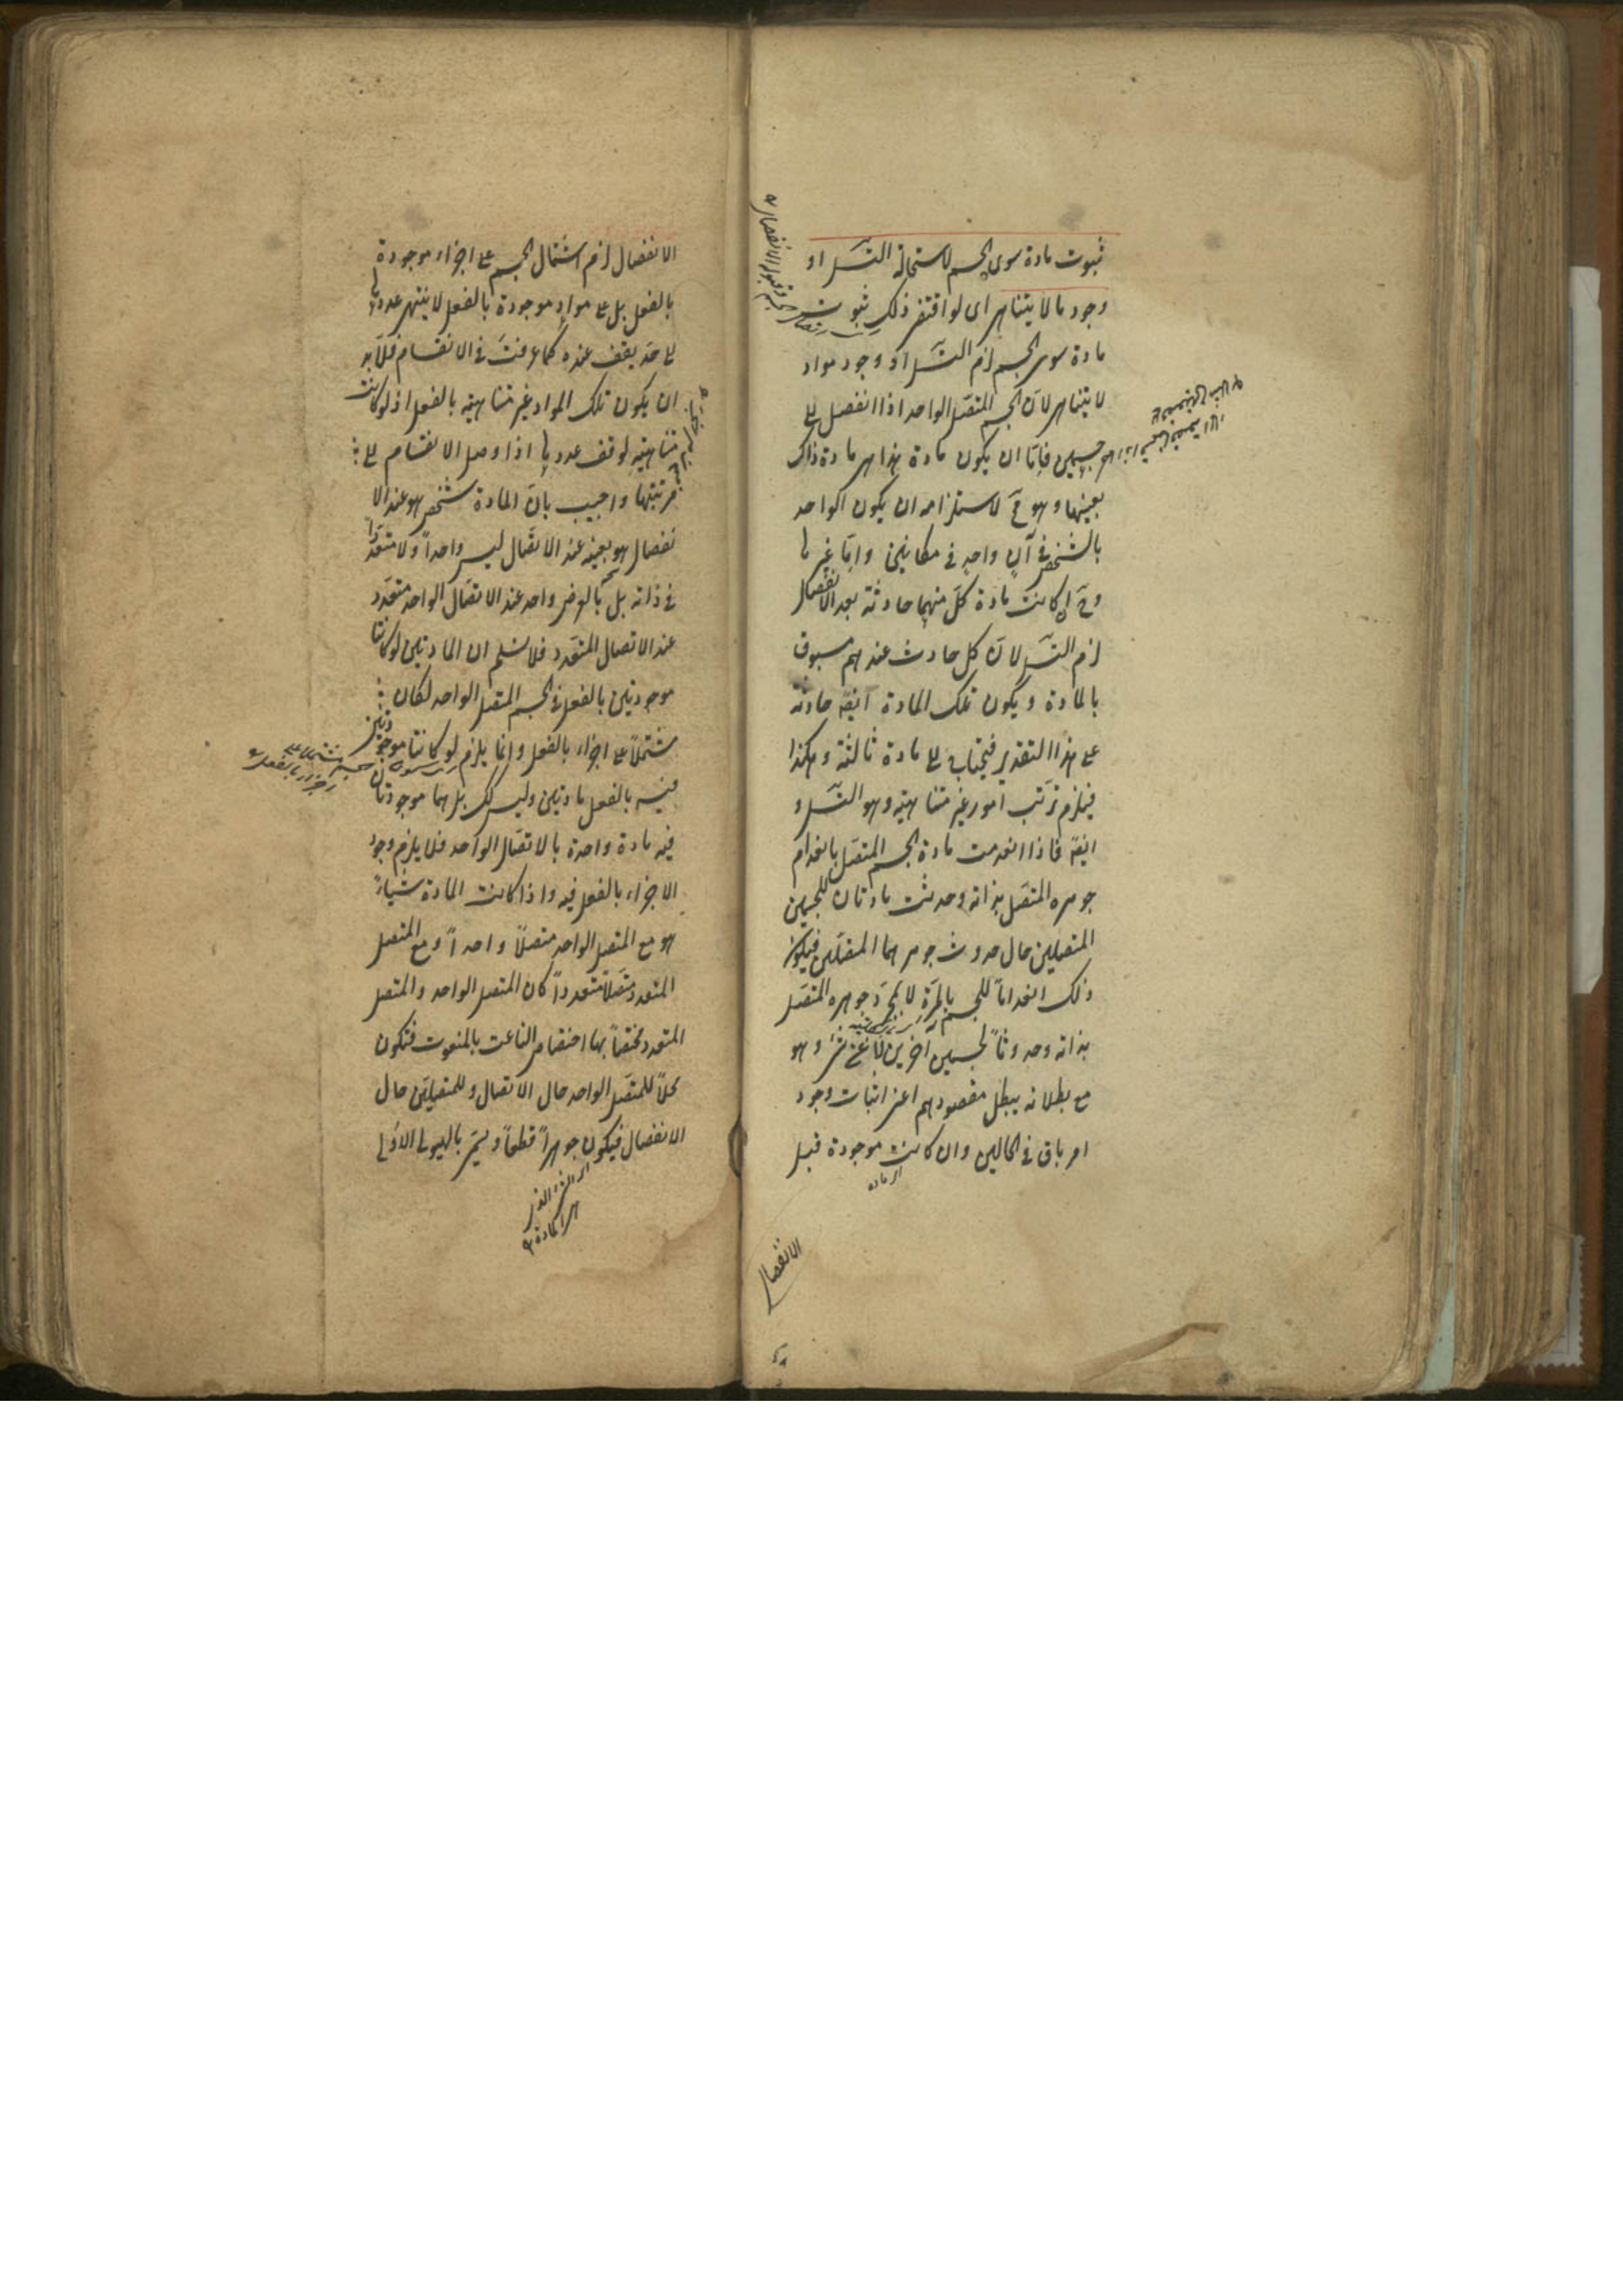 ثبوت مادة سوى الجسم لاستحالة التسلسل او
وجود ما لا يتناهى اى لو اقتضى ذلك ثبوت
مادة سوى الجسم لزم التسلسل او وجود مواد
لا يتناهى لان الجسم المتصل الواحد اذا انفصل الى
جسمين فاما ان يكون مادة هذا هى مادة ذاك
بعينها وهو مح لاستلزامه ان يكون الواحد
بالشخص فى آن واحد فى مكانين واما غيرها
وح ان كانت مادة كل منهما حادثة بعد الانفصال
لزم التسلسل لان كل حادث عندهم مسبوق
بالمادة ويكون تلك المادة ايضا حادثة
على هذا التقدير فيحتاج الى مادة ثالثة وهكذا
فيلزم ترتب امور غير متناهية وهو التسلسل و
ايضا فاذا انعدمت مادة الجسم المتصل بانعدام
جوهره المتصل بذاته وحدثت مادتان للجسمين
المتصلين حال حدوث جوهرهما المتصلين فيكون
ذلك انعداما للجسم بالمرة لا لمجرد جوهره المتصل
بذاته وحدوثا لجسمين آخرين لا عن شئ وهو
مع بطلانه يبطل مقصودهم اعنى اثبات وجود
امر باق فى الحالين وان كانت موجودة قبل
اى مادة
الانفصال
الانفصال لزم اشتمال الجسم على اجزاء موجودة
بالفعل بل على مواد موجودة بالفعل لا ينتهى عددها
الى حد يقف عنده كما عرفت فى الانقسام فلا بد
ان يكون تلك المواد غير متناهية بالفعل اذ لو كانت
متناهية لوقف عددها اذا وصل الانقسام الى
مرتبتها واجيب بان المادة شخص هو عند الا
نفصال هو بعينه عند الاتصال ليس واحدا ولا متعددا
فى ذاته بل بالعرض واحد عند الاتصال الواحد متعدد
عند الاتصال المتعدد فلا نسلم ان المادتين لو كانتا
موجودتين بالفعل فى الجسم المتصل الواحد لكان
مشتملا على اجزاء بالفعل وانما يلزم لو كانتا موجودتين
فيه بالفعل مادتين وليس كك بل هما موجودتان
فيه مادة واحدة بالاتصال الواحد فلا يلزم وجود
الاجزاء بالفعل فيه واذا كانت المادة شياء
هو مع المتصل الواحد متصلا واحدا ومع المتصل
المتعدد متصلا متعددا كان المتصل الواحد والمتصل
المتعدد مختصا بها اختصاص الناعت بالمنعوت فتكون
محلا للمتصل الواحد حال الاتصال وللمتصلين حال
الانفصال فيكون جوهرا قطعا ويسمى بالهيولى الاولى
اى الشئ الذى
هى المادة